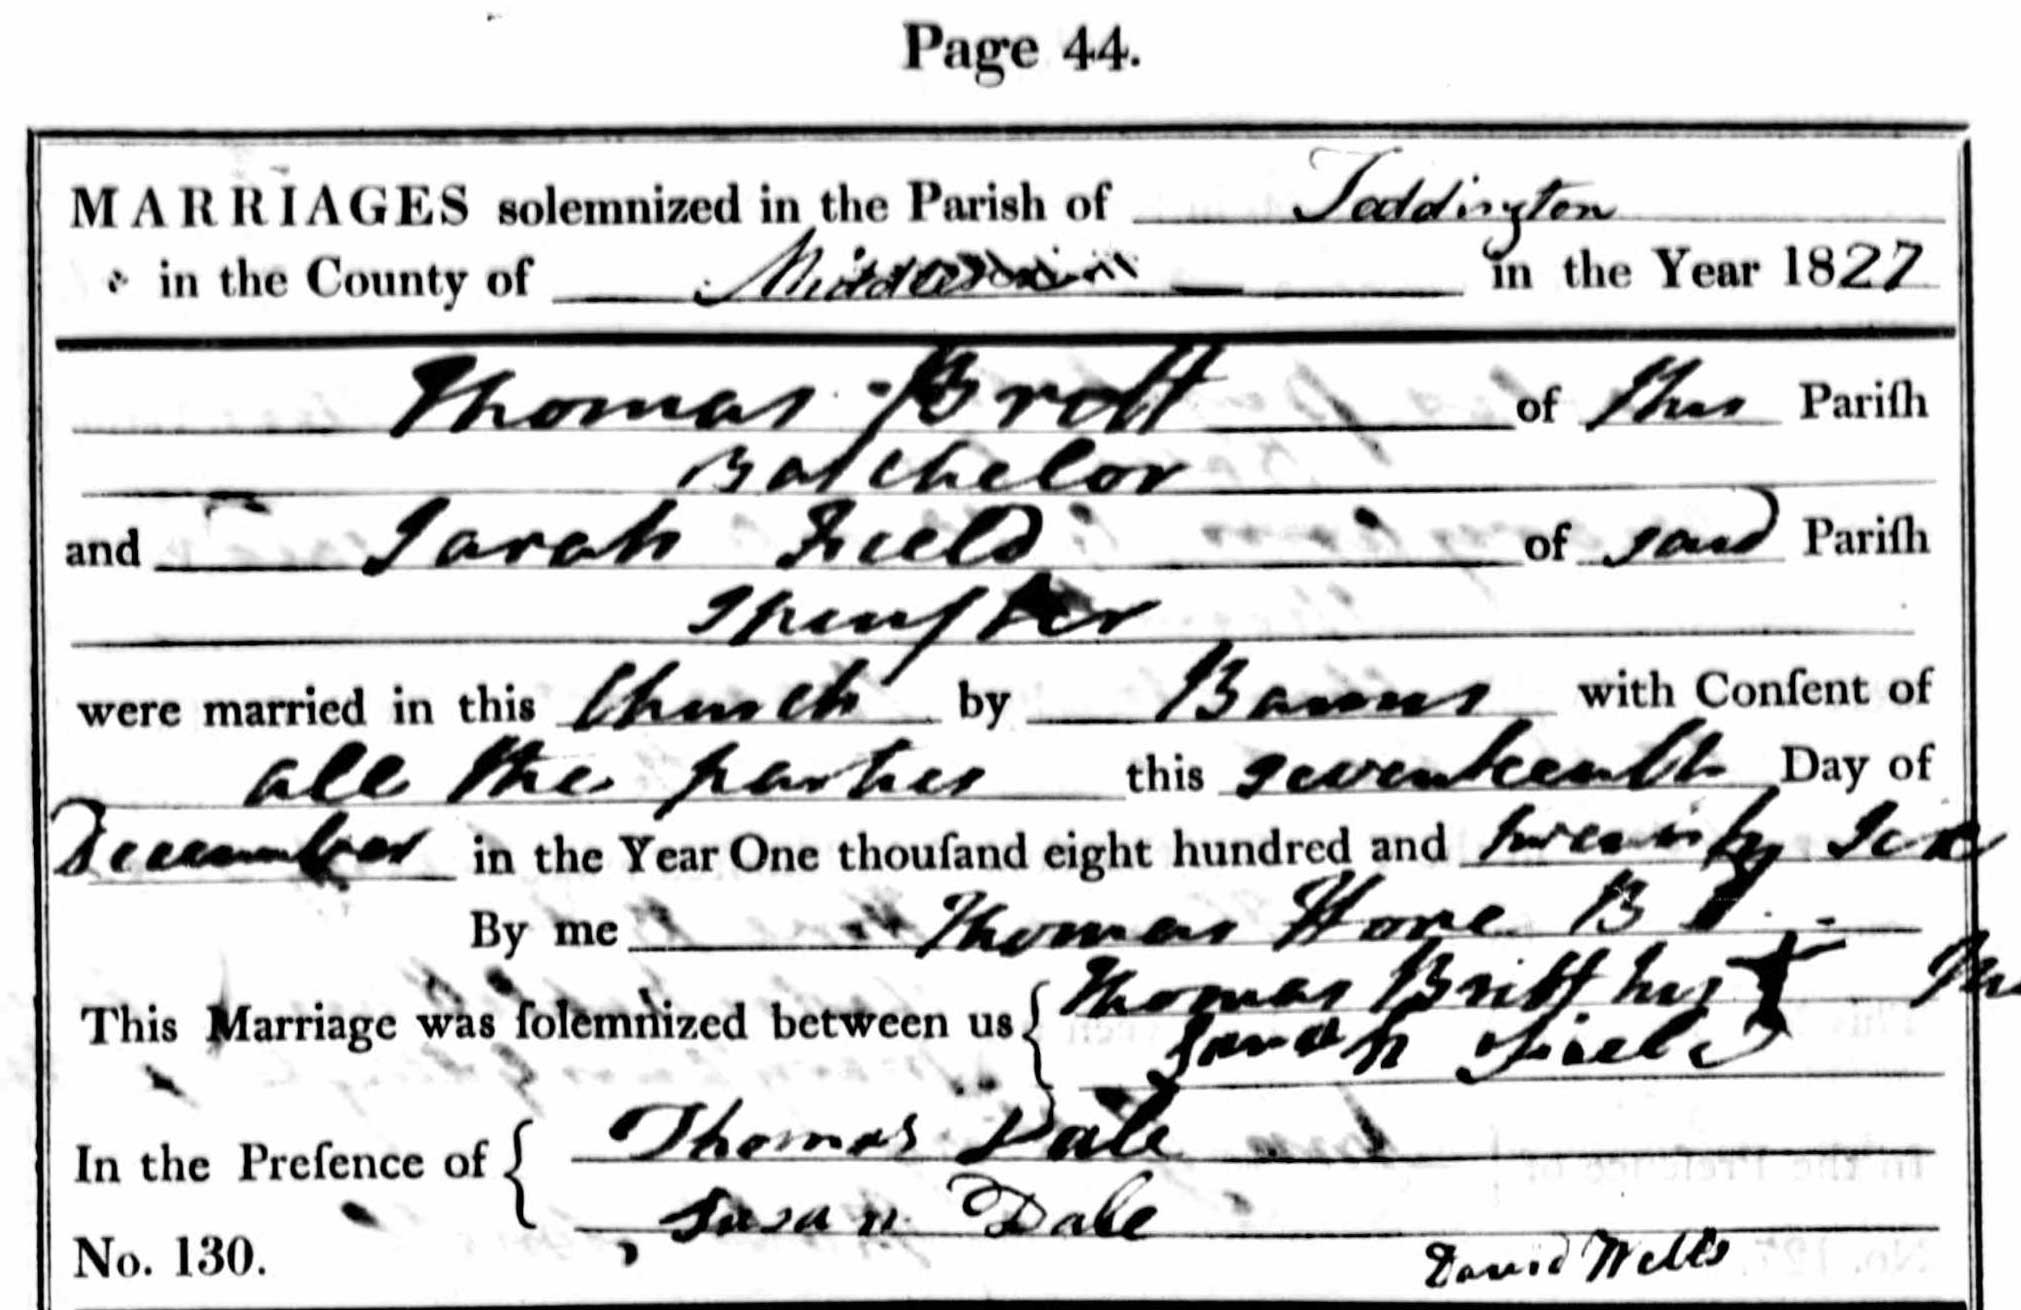 Page 44.
MARRIAGES solemnized in the Parish of Teddington
in the County of Middlesex in the Year 1827
Thomas Brott of this Pariſh
Batchelor
and Sarah Field of said Pariſh
Spinſter
were married in this Church by Banns with Conſent of
all the parties this seventeenth Day of
December in the Year One thouſand eight hundred and twenty six
By me Thomas Hore B D
This Marriage was ſolemnized between us { Thomas Britt his X
Sarah Field
In the Preſence of { Thomas Dale
Susan Dale
No. 130. David Wells